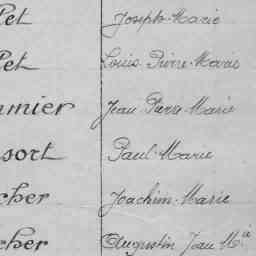 let Joseph-Marie
let Louis Pierre-Marie
mmier Jean Pierre-Marie
sort Paul-Marie
cher Joachim-Marie
cher Augustin Jean M.ie